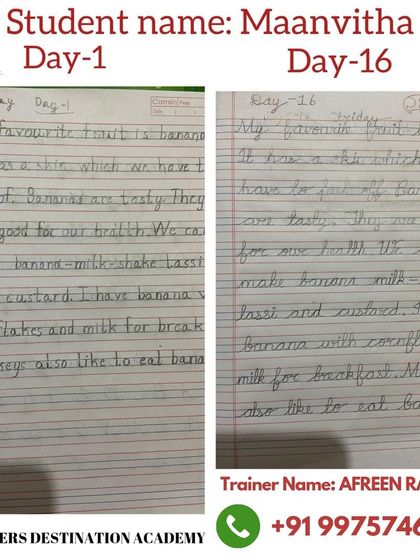 Student name: Maanvitha
Day-1
Day-16
ay Day-1
Camlin Page
Date
favourite fruit is banana
as a skin which we have t
of. Bananas are tasty. They
good for our health. We ca
banana-milk-shake lassi
custard. I have banana w
lakes and milk for break
keys also like to eat bana
Day-16
Friday
My favourite fruit
It has a skin which
have to peel off. Ba
are tasty. They are
for our health. We
make banana milk-
lassi and custard. I
banana with cornfl
milk for breakfast. M
also like to eat ba
Trainer Name: AFREEN RA
ERS DESTINATION ACADEMY
+91 9975746